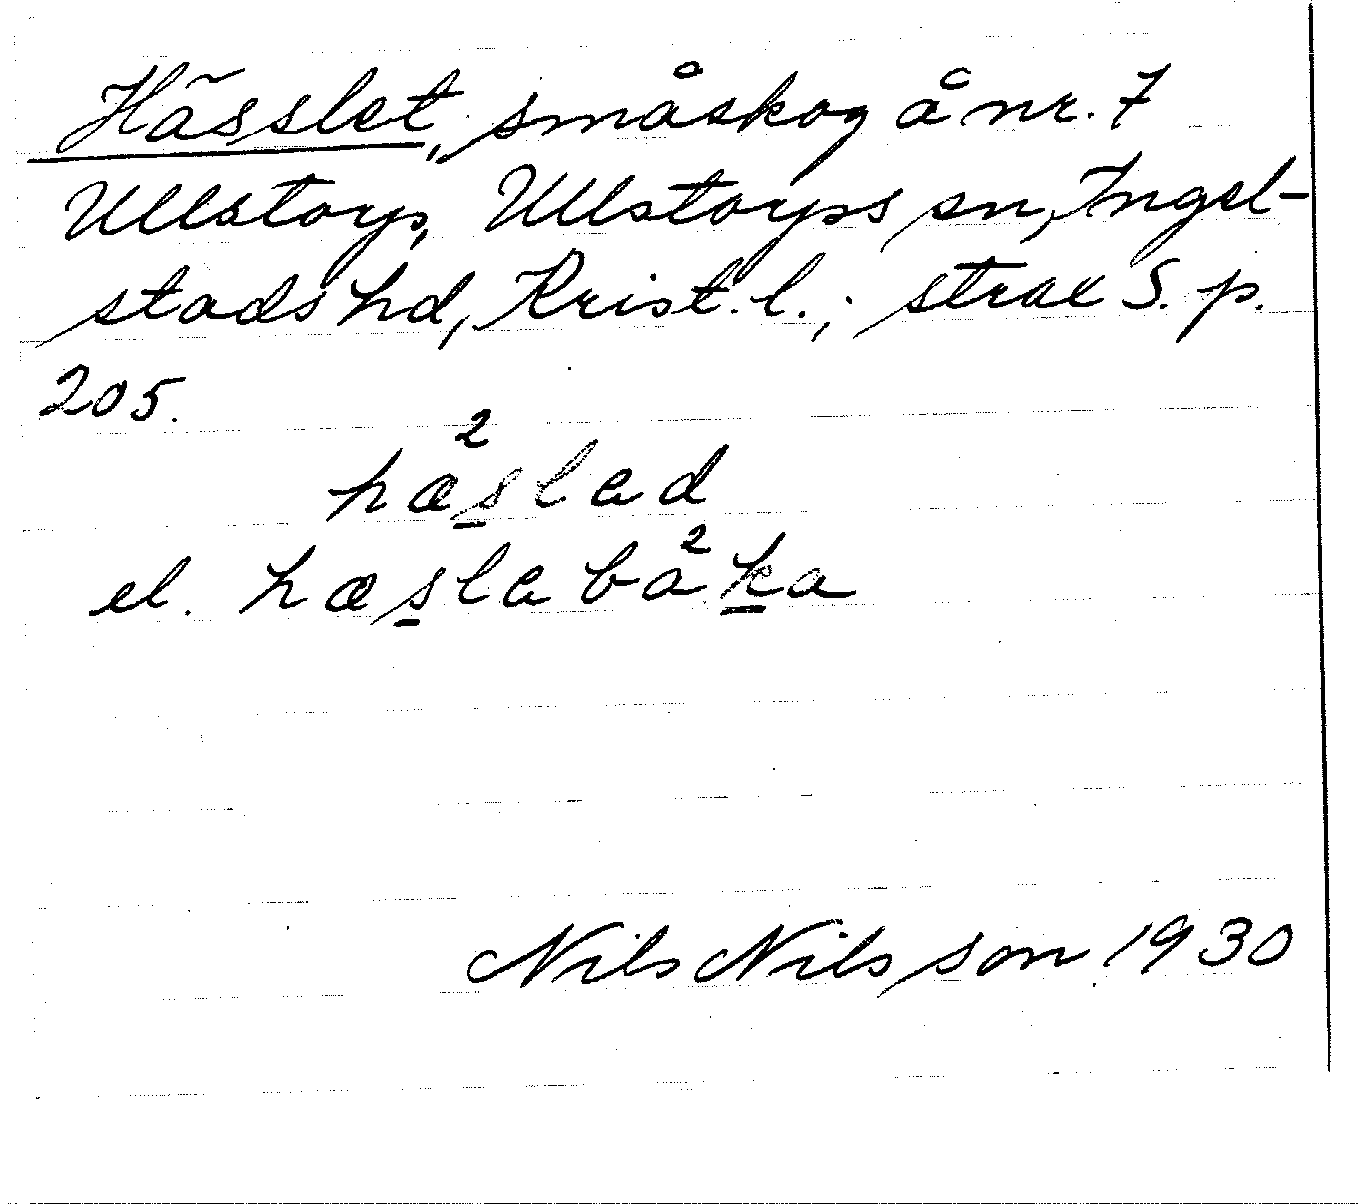 Hässlet, småskog å nr. 7
Ullstorp, Ullstorps sn, Ingel-
stads hd, Krist. l.; strax S. p.
205.
hæ²s̲lad
el. hæs̲labå²k̲a
Nils Nilsson 1930